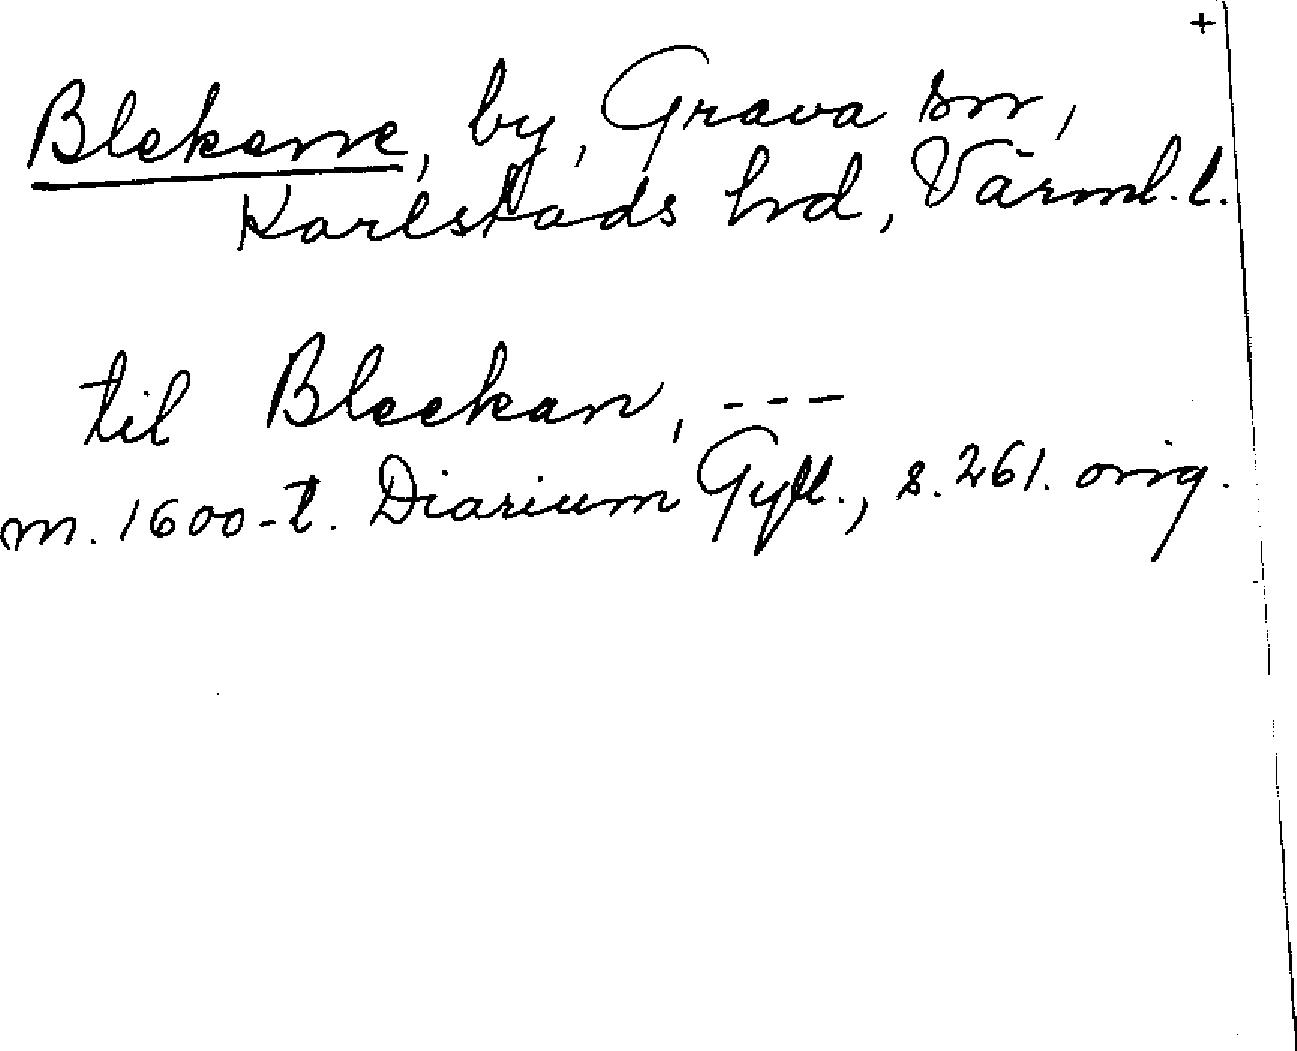 +
Blekene, by, Grava sn,
Karlstads hd, Värml. l.
til Bleekan, ---
m. 1600-t. Diarium Gyll., s. 261. orig.